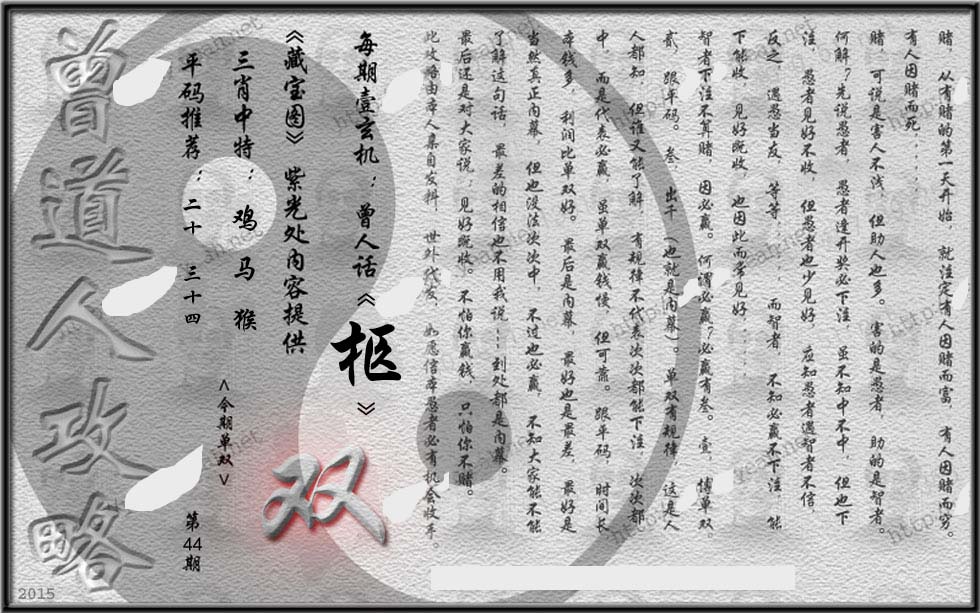 赌，从有赌的第一天开始，就注定有人因赌而富，有人因赌而穷。
有人因赌而死．．．．．．
赌，可说是害人不浅，但助人也多。害的是愚者，助的是智者。
何解？先说愚者，愚者逢开奖必下注，虽不知中不中，但也下
注，愚者见好不收，但愚者也少见好，应知愚者遇智者不信，
反之，遇愚当友，等等．．．．．．而智者，不知必赢不下注，能
下能收，见好既收，也因此而常见好．．．．．．
智者下注不算赌，因必赢。何谓必赢？必赢有叁。壹，博单双，
贰，跟平码。叁，出千（也就是内幕）。单双有规律，这是人
人都知，但谁又能了解，有规律不代表次次都能下注，次次都
中，而是代表必赢，虽单双赢钱慢，但可靠。跟平码，时间长，
本钱多，利润比单双好。最后是内幕，最好也是最差，最好是
当然真正内幕，但也没法次次中，不过也必赢，不知大家能不能
了解这句话，最差的相信也不用我说……到处都是内幕。
最后还是对大家说：见好既收。不怕你赢钱，只怕你不赌。
此攻略由本人亲自发料，世外代发，如愿信本愚者必有机会收手。
每期壹玄机：曾人话《柩》
《藏宝图》紫光处内容提供
三肖中特：鸡 马 猴
平码推荐：二十 三十四
<今期单双>
双
第44期
曾道人攻略
2015